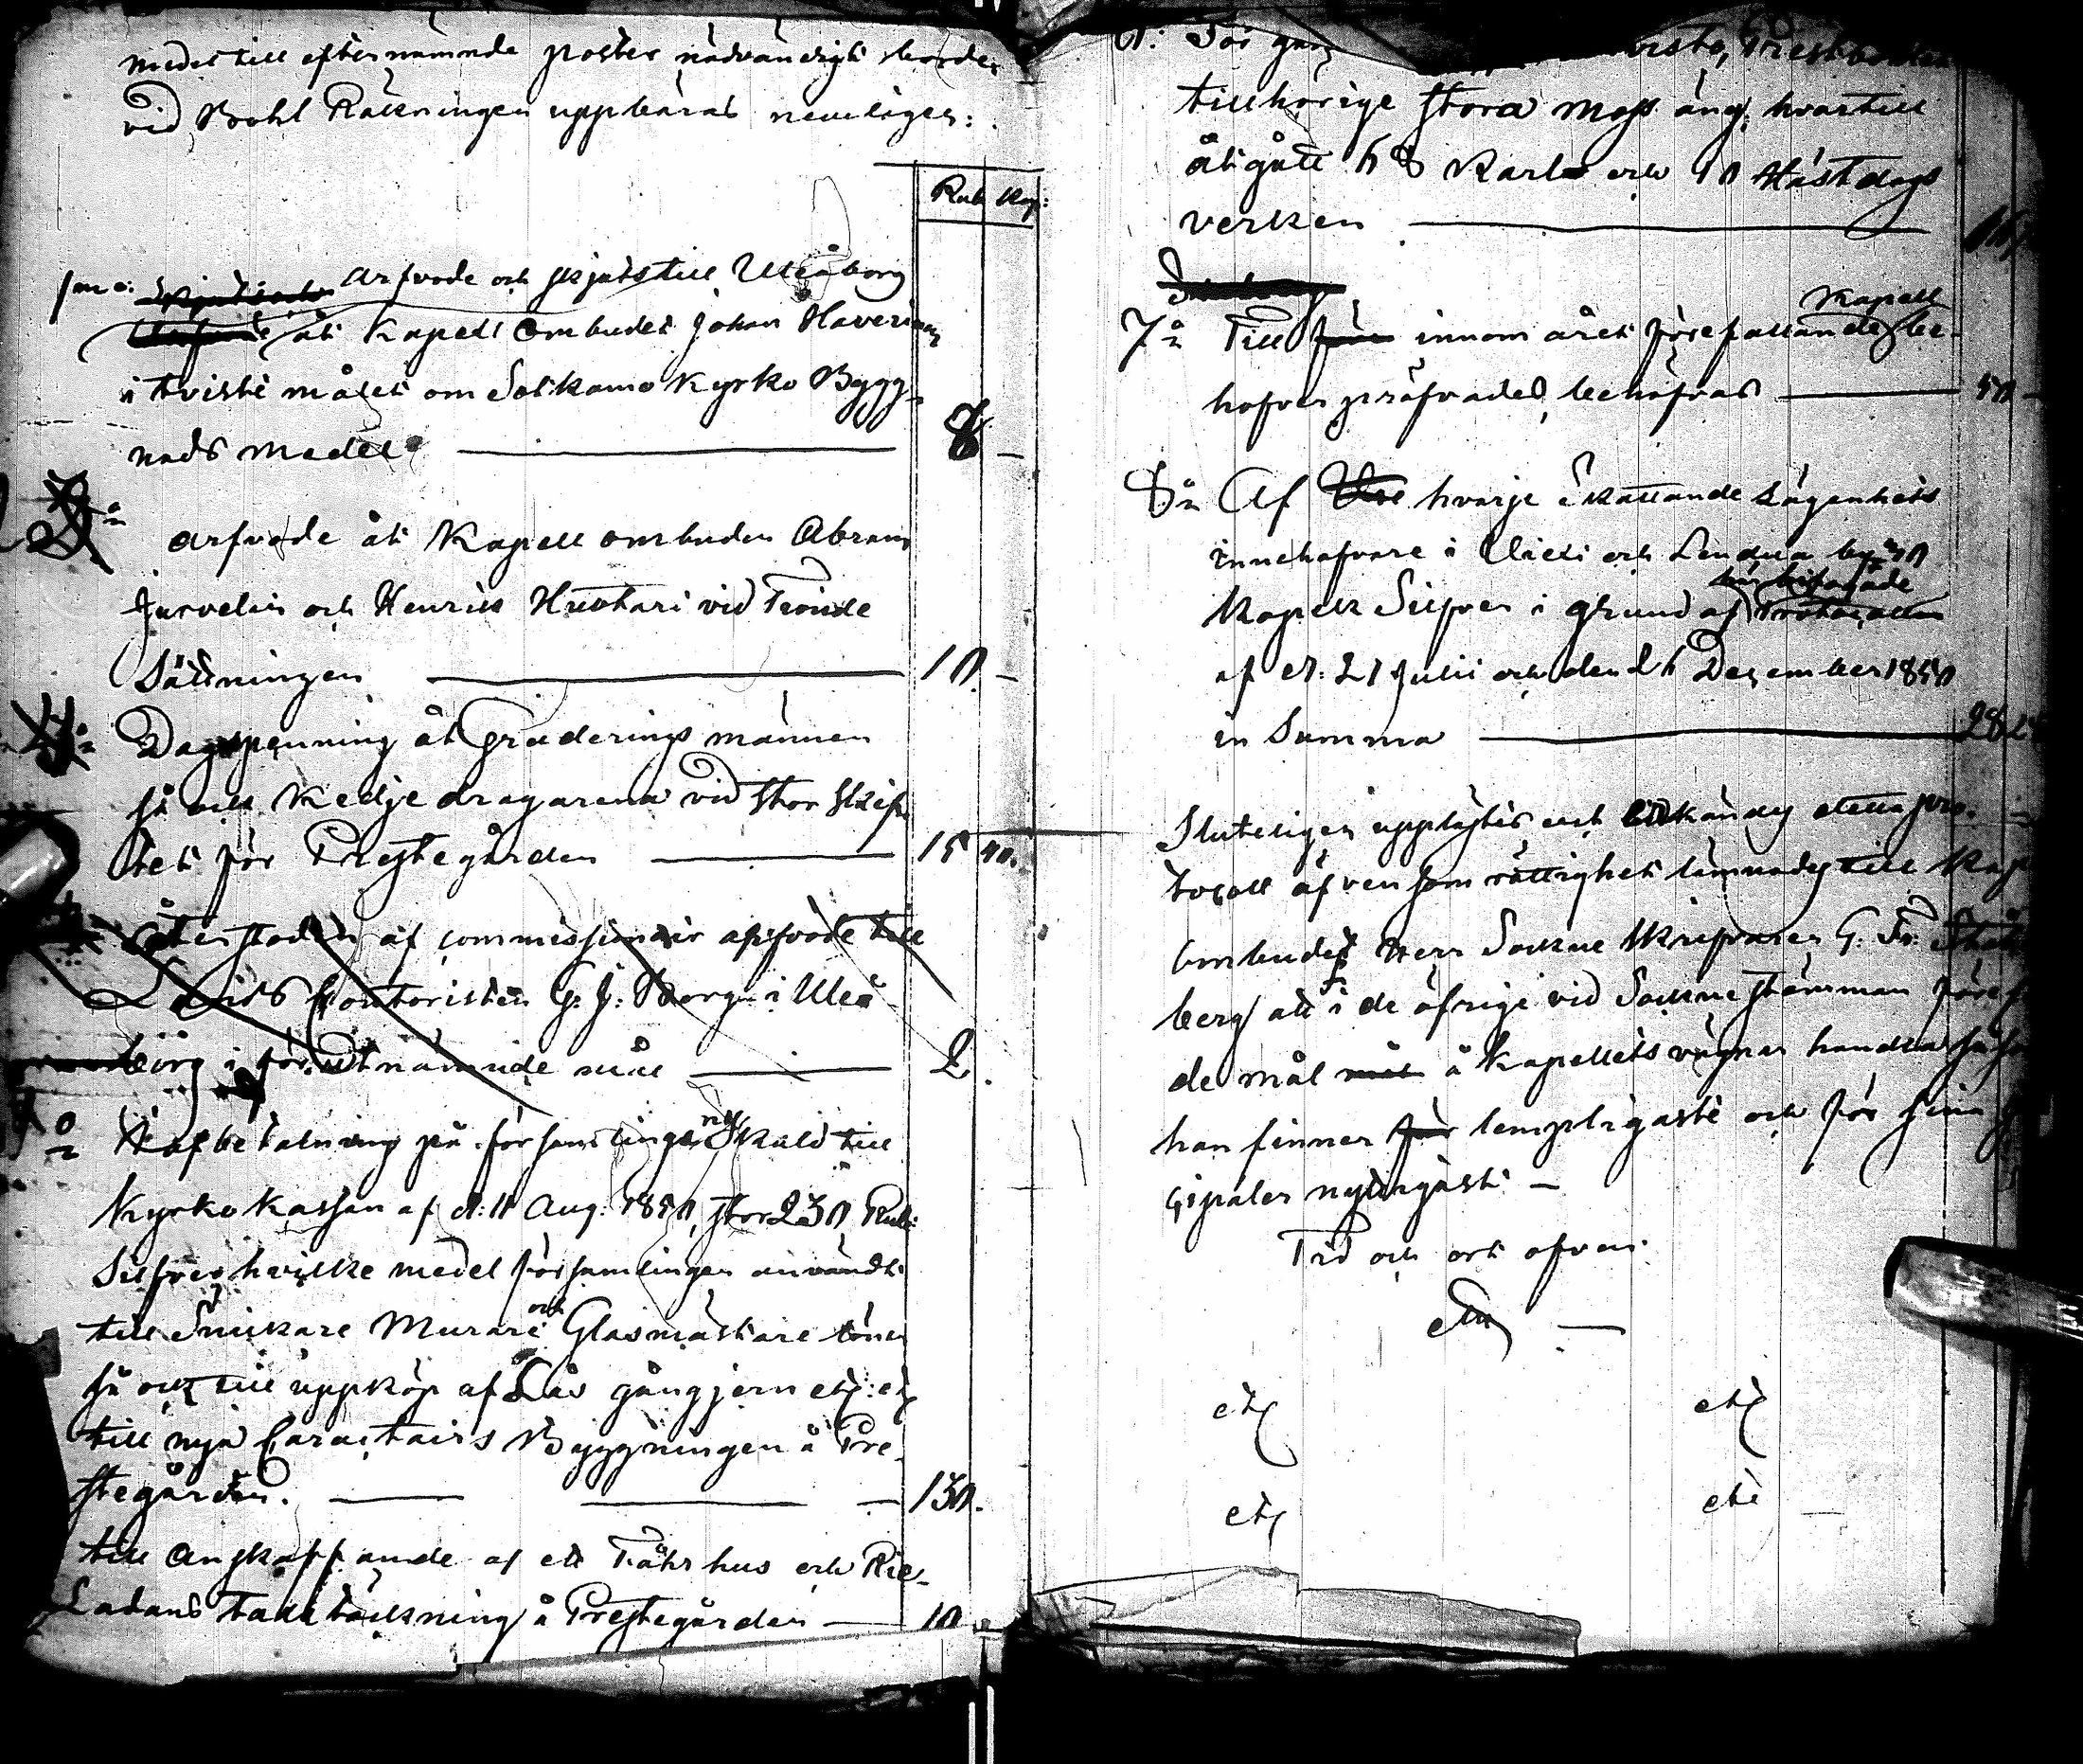 medel till efternämnde poster nödvändigt borde
vid Bohl Räkningen uppbäras nemligen:
Rub Kop:
1mo: Arfvode och skjuts till Uleåborg
åt Kapell Ombudet Johan Haverinen
i tviste målet om Sotkamo Kyrko Bygg-
nads medel 8 —
arfvode åt Kapell ombuden Abram
Jurvelin och Henrik Huotari vid Tionde
Sättningen 10. —
Dagspenning åt Graderings männen
så ock Kedje dragarena vid Stor Skif-
tet för Prestegården 15 40.
Återstoden af commissionair arfvode till
Lands Contoristen G. J. Borg i Uleå
borg i förutnämnde mål 2.
Afbetalning på församlings skuld till
Kyrko Kassan af d: 11 Aug: 1850, stor 230 Rub:
Silfver hvilke medel församlingen användt
till Snickare Murare och Glasmästare löner
så ock till uppköp af Lås gångjern etc: etc
till nya Caractairs Byggningen å Pre-
stegården. 130.
till anskaffande af ett Fährhus och Rie-
Ladans taktäckning å Prestegården 10
6:
tillhörige stora moss äng, hvartill
åtgått 68 Karls och 10 Hästdags
verken
7o Till för innom året förefallande Kapell be-
hofver pröfvades behöfvas 50 —
8o Af hvarje Skattande Lägenhets
innehafvare i och by
Kapek Silfver i grund af bifogade Protocoller
af d: 21 Julii och den 26 December 1850
in Summa 28
Sluteligen upplästes och erkändes detta pro-
tocoll äfven som rättighet lämnades till Kap
Ombudet Herr Sockne Skrifvaren G. Fr:
berg att i de öfrige vid Sockne stämman föref
de mål mål å Kapellets vägnar handla så
han finner för lempligaste och för sine
cipaler nyttigast —
Tid och ort ofvan
etc etc
etc etc